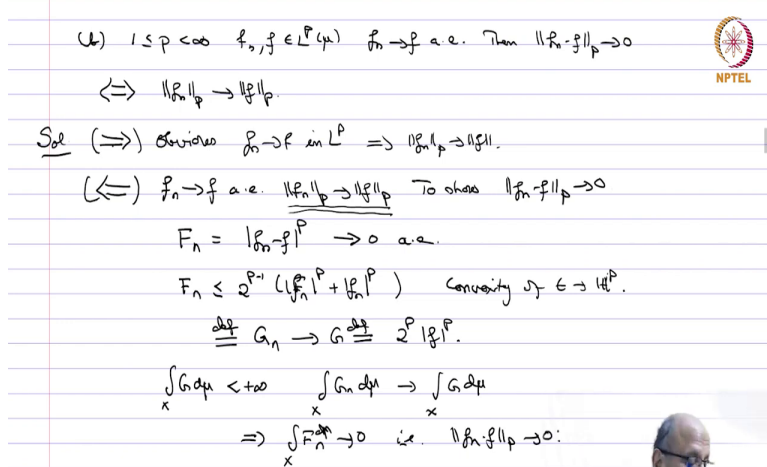 (b) 1 ≤ p < ∞ fₙ, f ∈ Lᵖ(μ) fₙ → f a.e. Then ‖fₙ-f‖ₚ → 0
⟺ ‖fₙ‖ₚ → ‖f‖ₚ.
NPTEL
Sol (⟹) obvious fₙ → f in Lᵖ ⟹ ‖fₙ‖ₚ → ‖f‖.
(⟸) fₙ → f a.e. ‖fₙ‖ₚ → ‖f‖ₚ To show ‖fₙ-f‖ₚ → 0
Fₙ = |fₙ-f|ᵖ → 0 a.e.
Fₙ ≤ 2ᵖ⁻¹ (|f|ᵖ + |fₙ|ᵖ) Convexity of t → |t|ᵖ.
≝ Gₙ → G ≝ 2ᵖ |f|ᵖ.
∫_X G dμ < +∞ ∫_X Gₙ dμ → ∫_X G dμ
⟹ ∫_X Fₙ dμ → 0 i.e. ‖fₙ-f‖ₚ → 0: